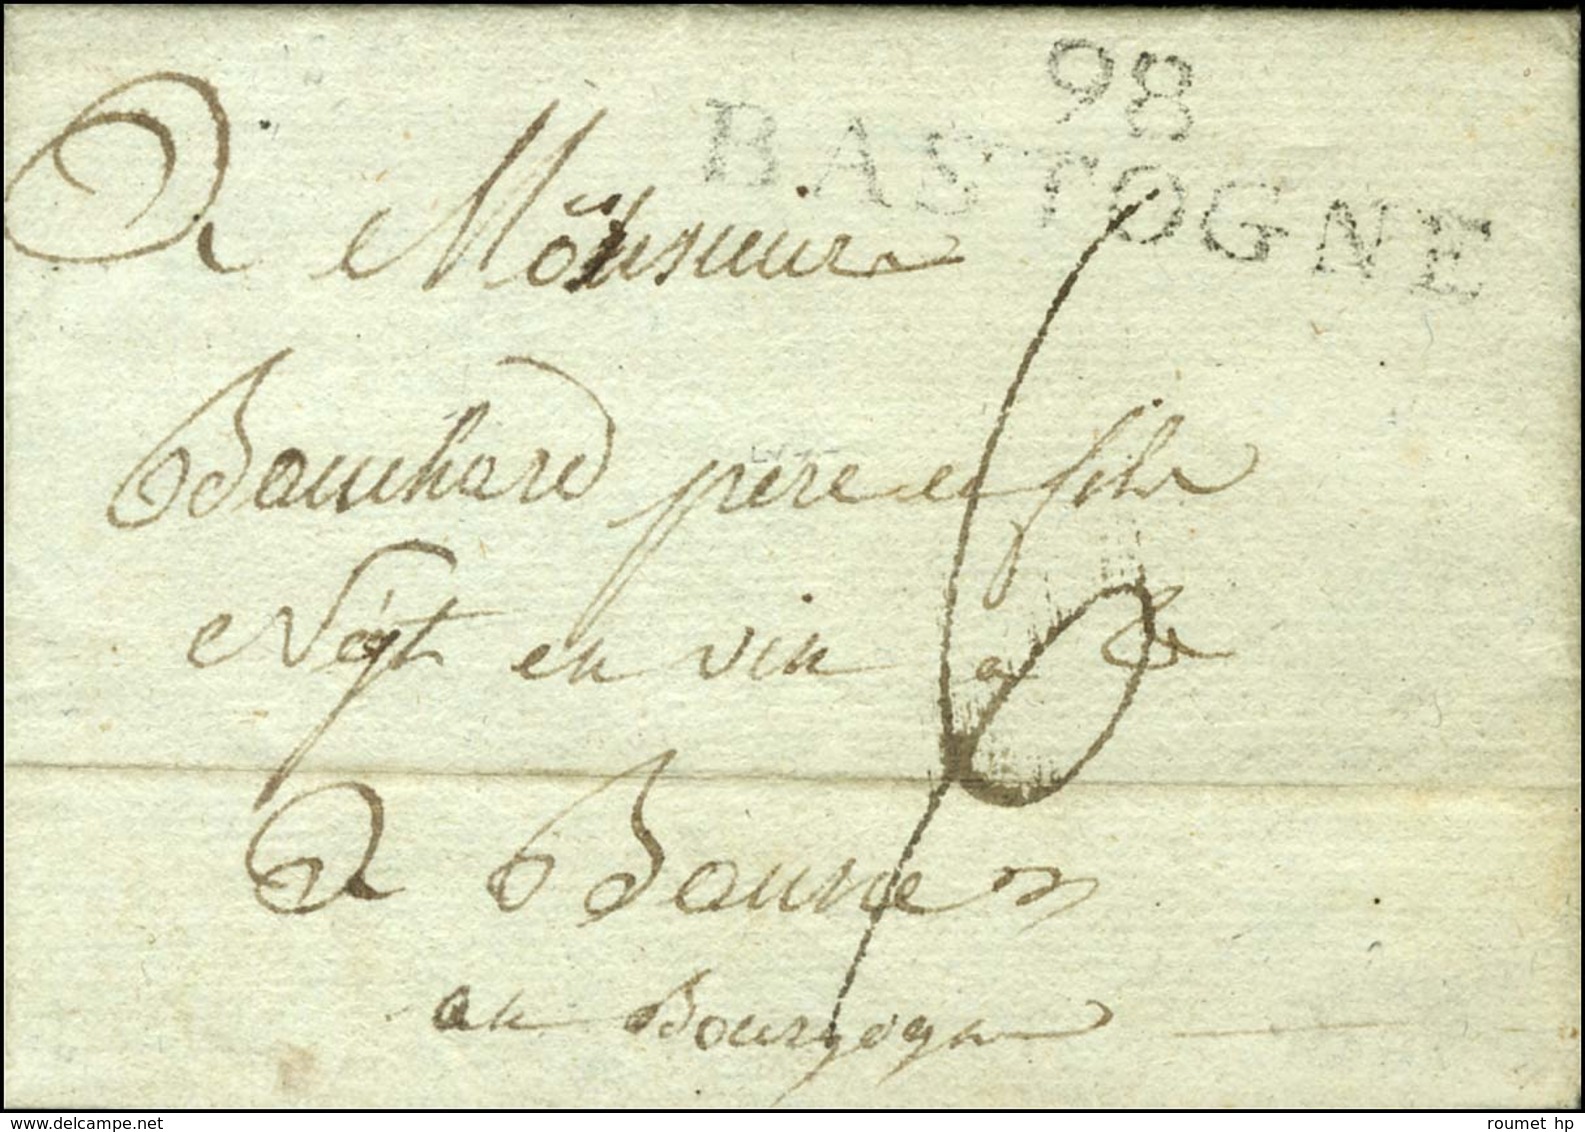 98
BASTOGNE
A Monsieur
Bouchard père et fils
Négt en vin a &
A Beaune
en Bourgogne
roumet hp